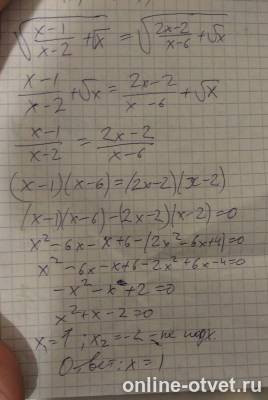 √((x-1)/(x-2) + √x) = √((2x-2)/(x-6) + √x)
(x-1)/(x-2) + √x = (2x-2)/(x-6) + √x
(x-1)/(x-2) = (2x-2)/(x-6)
(x-1)(x-6)=(2x-2)(x-2)
(x-1)(x-6)-(2x-2)(x-2)=0
x²-6x-x+6-(2x²-6x+4)=0
x²-6x-x+6-2x²+6x-4=0
-x²-x+2=0
x²+x-2=0
x₁=1; x₂=-2-не подх.
Ответ: x=1
online-otvet.ru